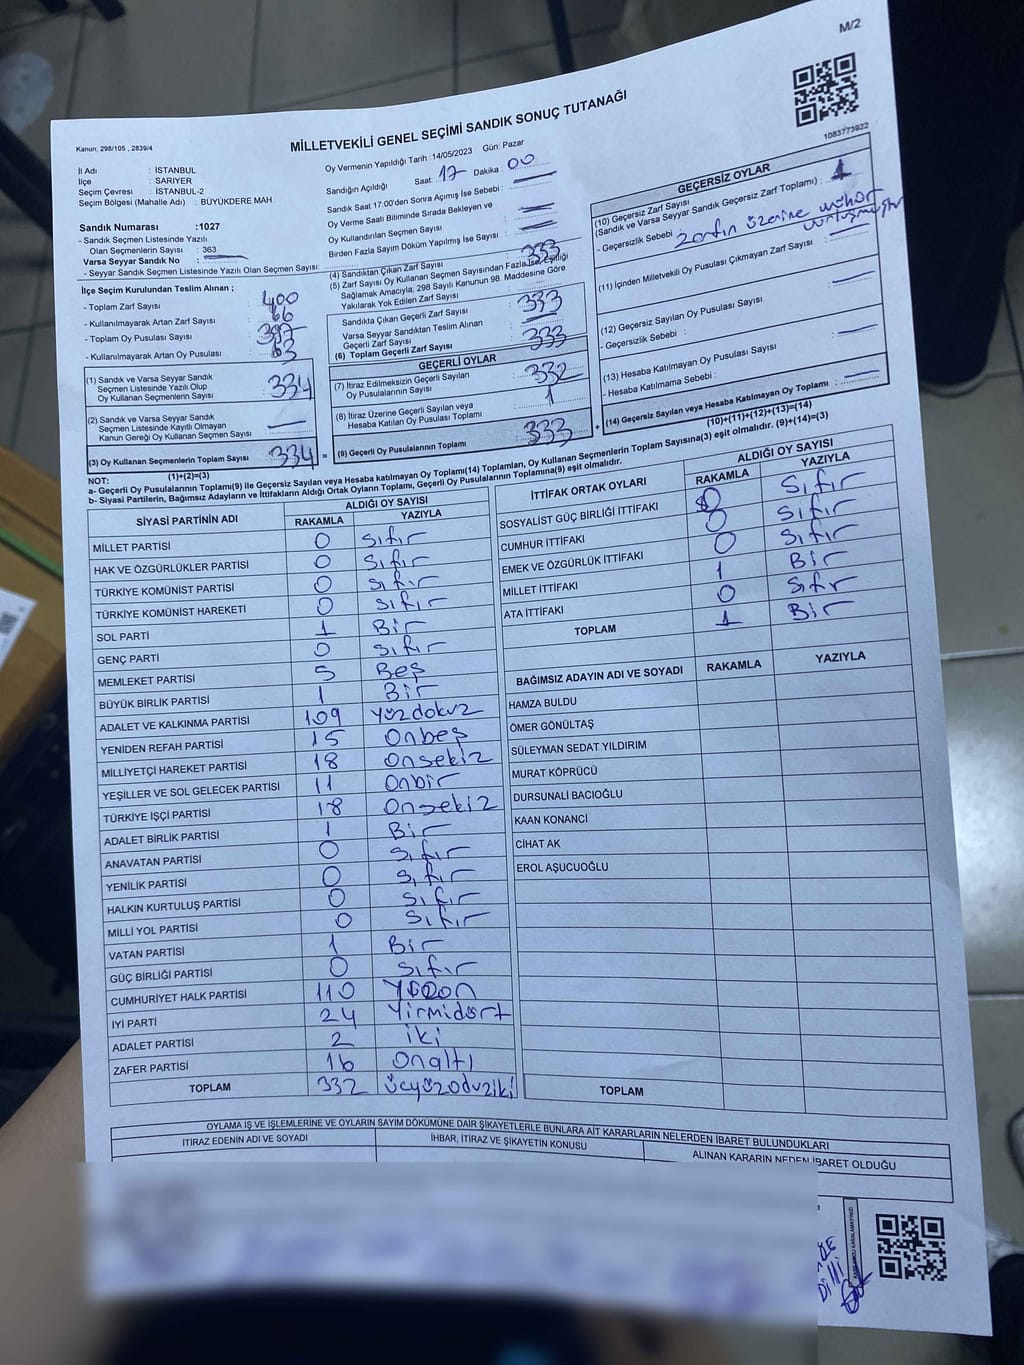 M/2
Kanun; 298/105 , 2839/4
MİLLETVEKİLİ GENEL SEÇİMİ SANDIK SONUÇ TUTANAĞI
1083773922
İl Adı : İSTANBUL
İlçe : SARIYER
Seçim Çevresi : İSTANBUL-2
Seçim Bölgesi (Mahalle Adı) : BÜYÜKDERE MAH
Sandık Numarası :1027
- Sandık Seçmen Listesinde Yazılı
Olan Seçmenlerin Sayısı : 363
Varsa Seyyar Sandık No :
- Seyyar Sandık Seçmen Listesinde Yazılı Olan Seçmen Sayısı:
İlçe Seçim Kurulundan Teslim Alınan ;
- Toplam Zarf Sayısı : 400
- Kullanılmayarak Artan Zarf Sayısı : 66
- Toplam Oy Pusulası Sayısı : 397
- Kullanılmayarak Artan Oy Pusulası : 63
(1) Sandık ve Varsa Seyyar Sandık
Seçmen Listesinde Yazılı Olup
Oy Kullanan Seçmenlerin Sayısı : 334
(2) Sandık ve Varsa Seyyar Sandık
Seçmen Listesinde Kayıtlı Olmayan
Kanun Gereği Oy Kullanan Seçmen Sayısı :
(3) Oy Kullanan Seçmenlerin Toplam Sayısı : 334
(1)+(2)=(3)
Oy Vermenin Yapıldığı Tarih : 14/05/2023 Gün: Pazar
Sandığın Açıldığı Saat: 17 Dakika : 00
Sandık Saat 17:00'den Sonra Açımış İse Sebebi :
Oy Verme Saati Bitiminde Sırada Bekleyen ve
Oy Kullandırılan Seçmen Sayısı :
Birden Fazla Sayım Döküm Yapılmış İse Sayısı :
(4) Sandıktan Çıkan Zarf Sayısı : 333
(5) Zarf Sayısı Oy Kullanan Seçmen Sayısından Fazla İse, Eşitliği
Sağlamak Amacıyla; 298 Sayılı Kanunun 98. Maddesine Göre
Yakılarak Yok Edilen Zarf Sayısı :
Sandıkta Çıkan Geçerli Zarf Sayısı : 333
Varsa Seyyar Sandıktan Teslim Alınan
Geçerli Zarf Sayısı :
(6) Toplam Geçerli Zarf Sayısı : 333
GEÇERLİ OYLAR
(7) İtiraz Edilmeksizin Geçerli Sayılan
Oy Pusulalarının Sayısı : 332
(8) İtiraz Üzerine Geçerli Sayılan veya
Hesaba Katılan Oy Pusulası Toplamı : 1
(9) Geçerli Oy Pusulalarının Toplamı : 333
GEÇERSİZ OYLAR
(10) Geçersiz Zarf Sayısı
(Sandık ve Varsa Seyyar Sandık Geçersiz Zarf Toplamı) : 1
- Geçersizlik Sebebi : Zarfın üzerine mühür
vurulmuştur
(11) İçinden Milletvekili Oy Pusulası Çıkmayan Zarf Sayısı :
(12) Geçersiz Sayılan Oy Pusulası Sayısı :
- Geçersizlik Sebebi :
(13) Hesaba Katılmayan Oy Pusulası Sayısı :
- Hesaba Katılmama Sebebi :
(14) Geçersiz Sayılan veya Hesaba Katılmayan Oy Toplamı :
(10)+(11)+(12)+(13)=(14)
NOT:
a- Geçerli Oy Pusulalarının Toplamı(9) ile Geçersiz Sayılan veya Hesaba katılmayan Oy Toplamı(14) Toplamları, Oy Kullanan Seçmenlerin Toplam Sayısına(3) eşit olmalıdır. (9)+(14)=(3)
b- Siyasi Partilerin, Bağımsız Adayların ve İttifakların Aldığı Ortak Oyların Toplamı, Geçerli Oy Pusulalarının Toplamına(9) eşit olmalıdır.
SİYASİ PARTİNİN ADI ALDIĞI OY SAYISI
RAKAMLA YAZIYLA
MİLLET PARTİSİ 0 Sıfır
HAK VE ÖZGÜRLÜKLER PARTİSİ 0 Sıfır
TÜRKİYE KOMÜNİST PARTİSİ 0 Sıfır
TÜRKİYE KOMÜNİST HAREKETİ 0 Sıfır
SOL PARTİ 1 Bir
GENÇ PARTİ 0 Sıfır
MEMLEKET PARTİSİ 5 Beş
BÜYÜK BİRLİK PARTİSİ 1 Bir
ADALET VE KALKINMA PARTİSİ 109 Yüzdokuz
YENİDEN REFAH PARTİSİ 15 Onbeş
MİLLİYETÇİ HAREKET PARTİSİ 18 Onsekiz
YEŞİLLER VE SOL GELECEK PARTİSİ 11 Onbir
TÜRKİYE İŞÇİ PARTİSİ 18 Onsekiz
ADALET BİRLİK PARTİSİ 1 Bir
ANAVATAN PARTİSİ 0 Sıfır
YENİLİK PARTİSİ 0 Sıfır
HALKIN KURTULUŞ PARTİSİ 0 Sıfır
MİLLİ YOL PARTİSİ 0 Sıfır
VATAN PARTİSİ 1 Bir
GÜÇ BİRLİĞİ PARTİSİ 0 Sıfır
CUMHURİYET HALK PARTİSİ 110 Yüzon
İYİ PARTİ 24 Yirmidört
ADALET PARTİSİ 2 iki
ZAFER PARTİSİ 16 Onaltı
TOPLAM 332 üçyüzoduziki
İTTİFAK ORTAK OYLARI ALDIĞI OY SAYISI
RAKAMLA YAZIYLA
SOSYALİST GÜÇ BİRLİĞİ İTTİFAKI 0 Sıfır
CUMHUR İTTİFAKI 0 Sıfır
EMEK VE ÖZGÜRLÜK İTTİFAKI 0 Sıfır
MİLLET İTTİFAKI 1 Bir
ATA İTTİFAKI 0 Sıfır
TOPLAM 1 Bir
BAĞIMSIZ ADAYIN ADI VE SOYADI RAKAMLA YAZIYLA
HAMZA BULDU
ÖMER GÖNÜLTAŞ
SÜLEYMAN SEDAT YILDIRIM
MURAT KÖPRÜCÜ
DURSUNALİ BACIOĞLU
KAAN KONANCİ
CİHAT AK
EROL AŞUCUOĞLU
TOPLAM
OYLAMA İŞ VE İŞLEMLERİNE VE OYLARIN SAYIM DÖKÜMÜNE DAİR ŞİKAYETLERLE BUNLARA AİT KARARLARIN NELERDEN İBARET BULUNDUKLARI
İTİRAZ EDENİN ADI VE SOYADI İHBAR, İTİRAZ VE ŞİKAYETİN KONUSU ALINAN KARARIN NEDEN İBARET OLDUĞU